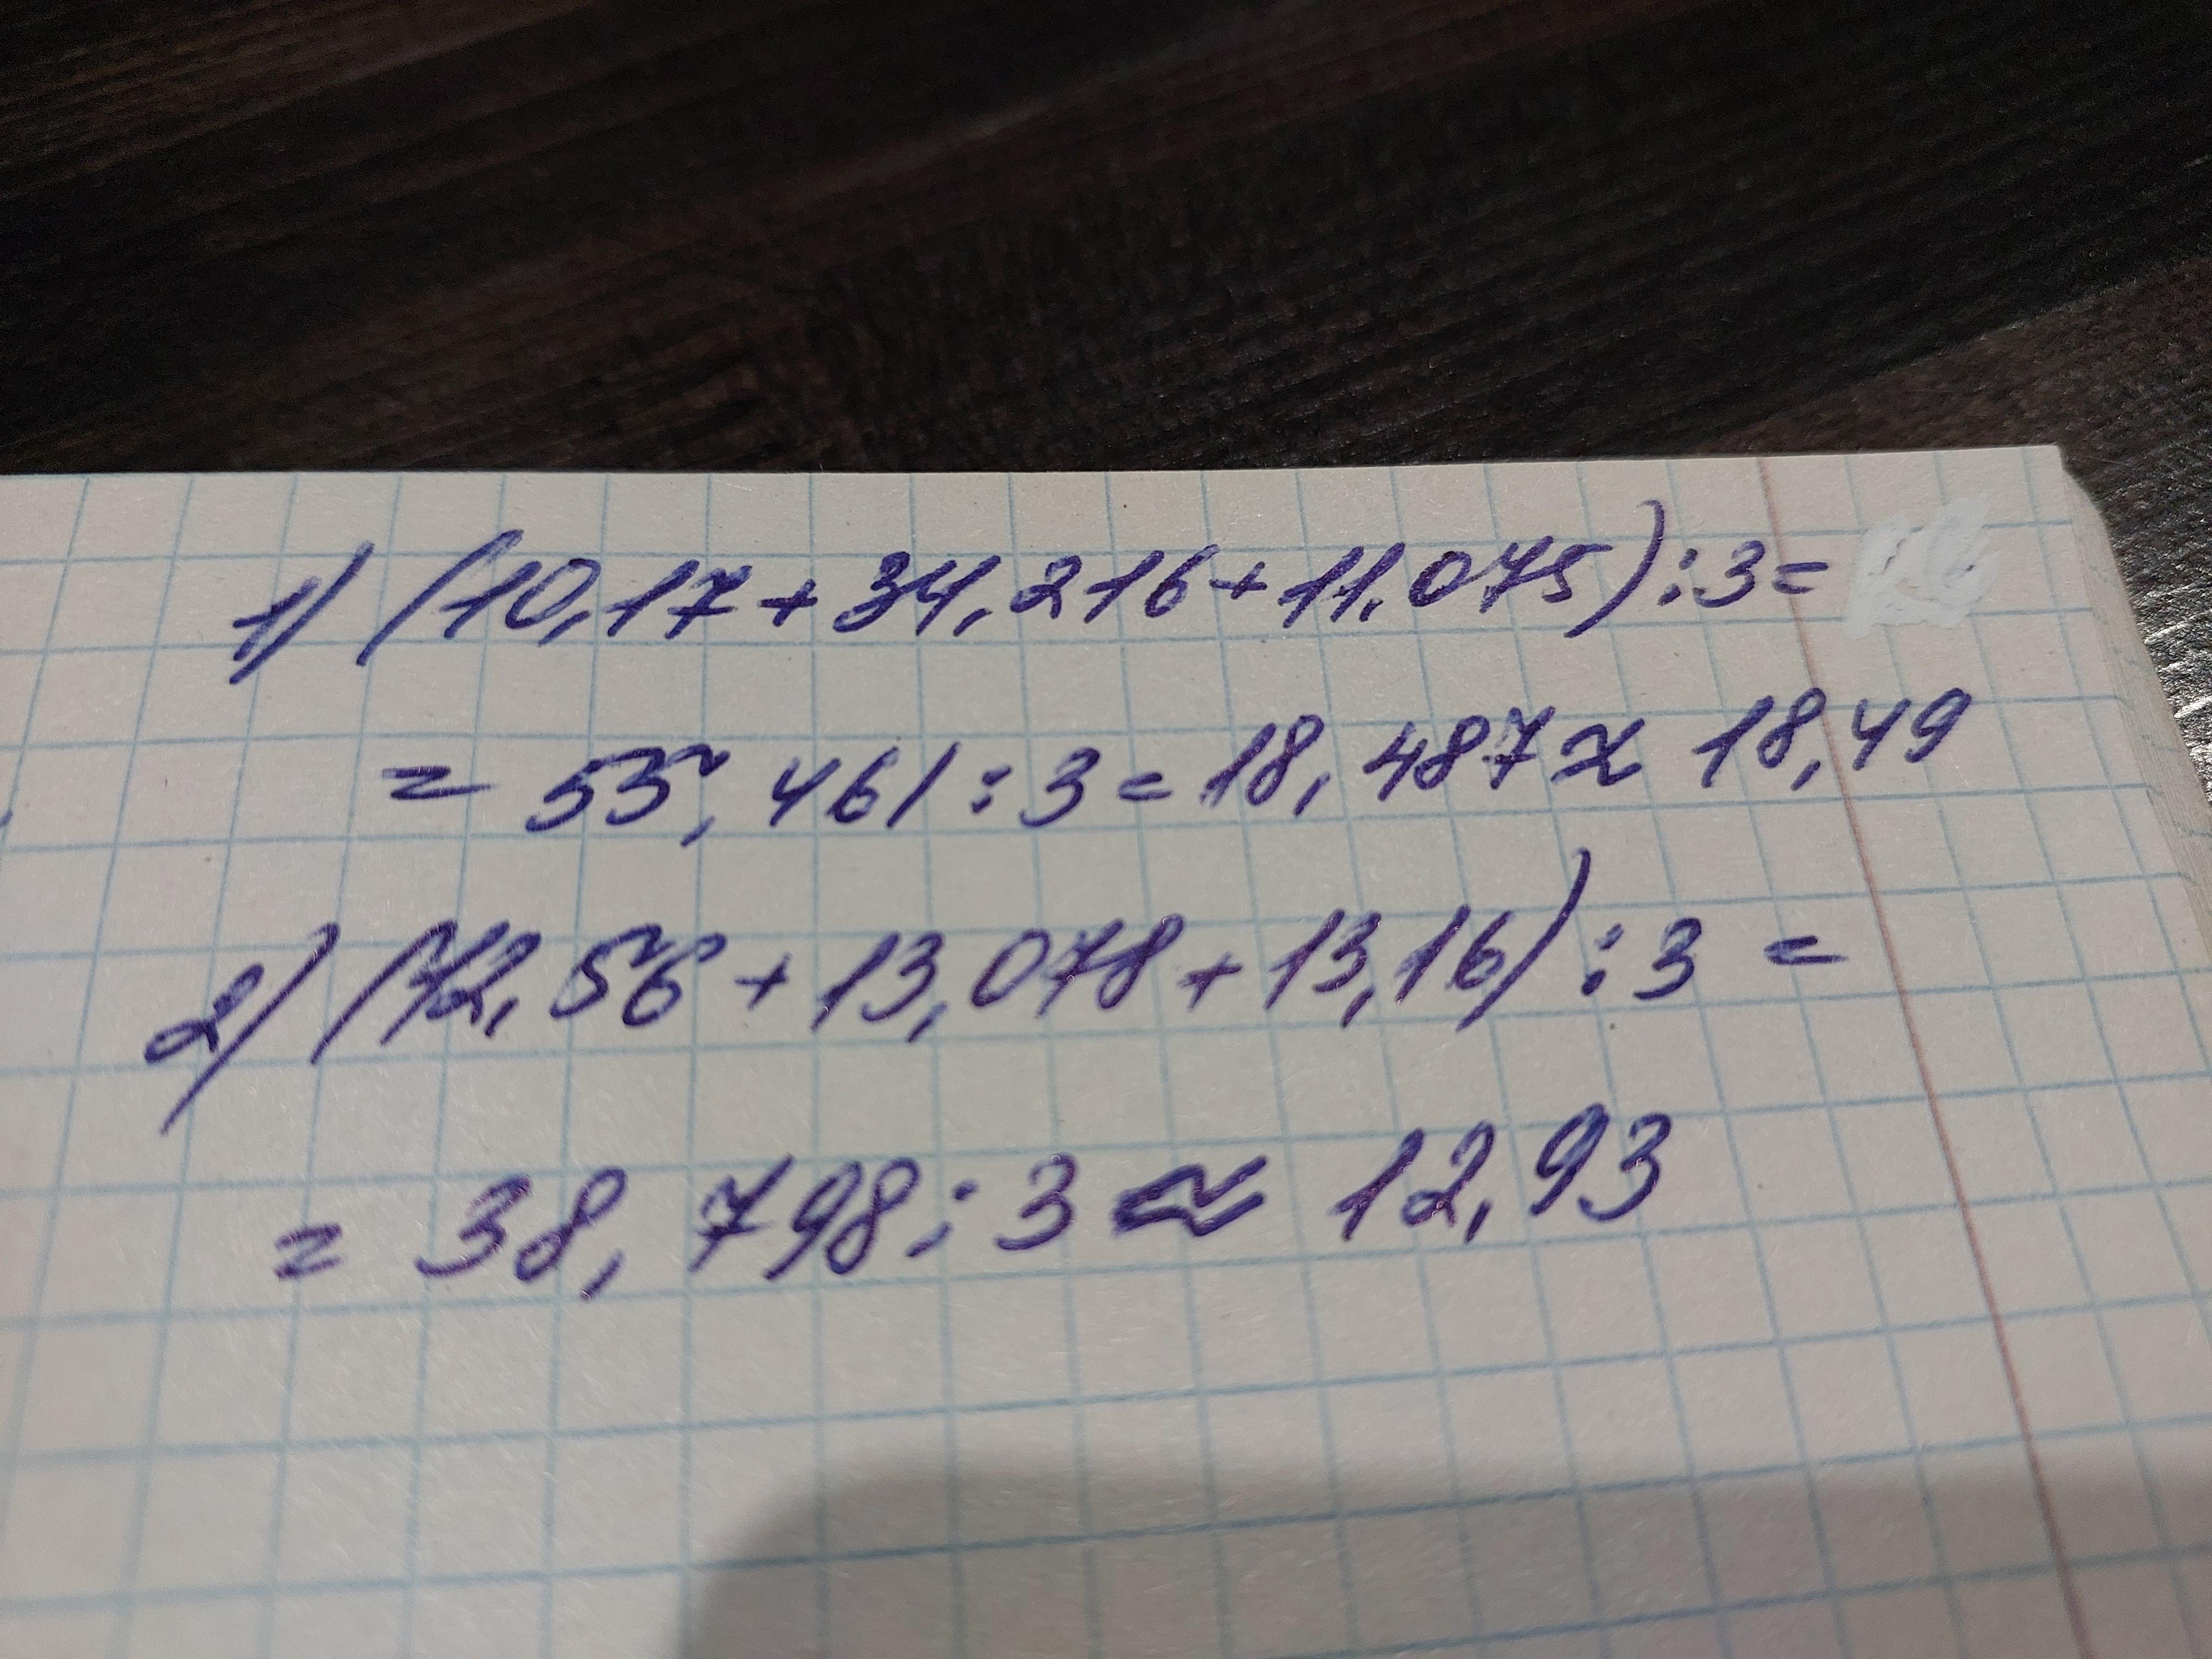 1) (10,17+34,216+11,075):3=
= 55,461:3=18,487≈ 18,49
2) (12,56+13,078+13,16):3 =
= 38,798:3 ≈ 12,93